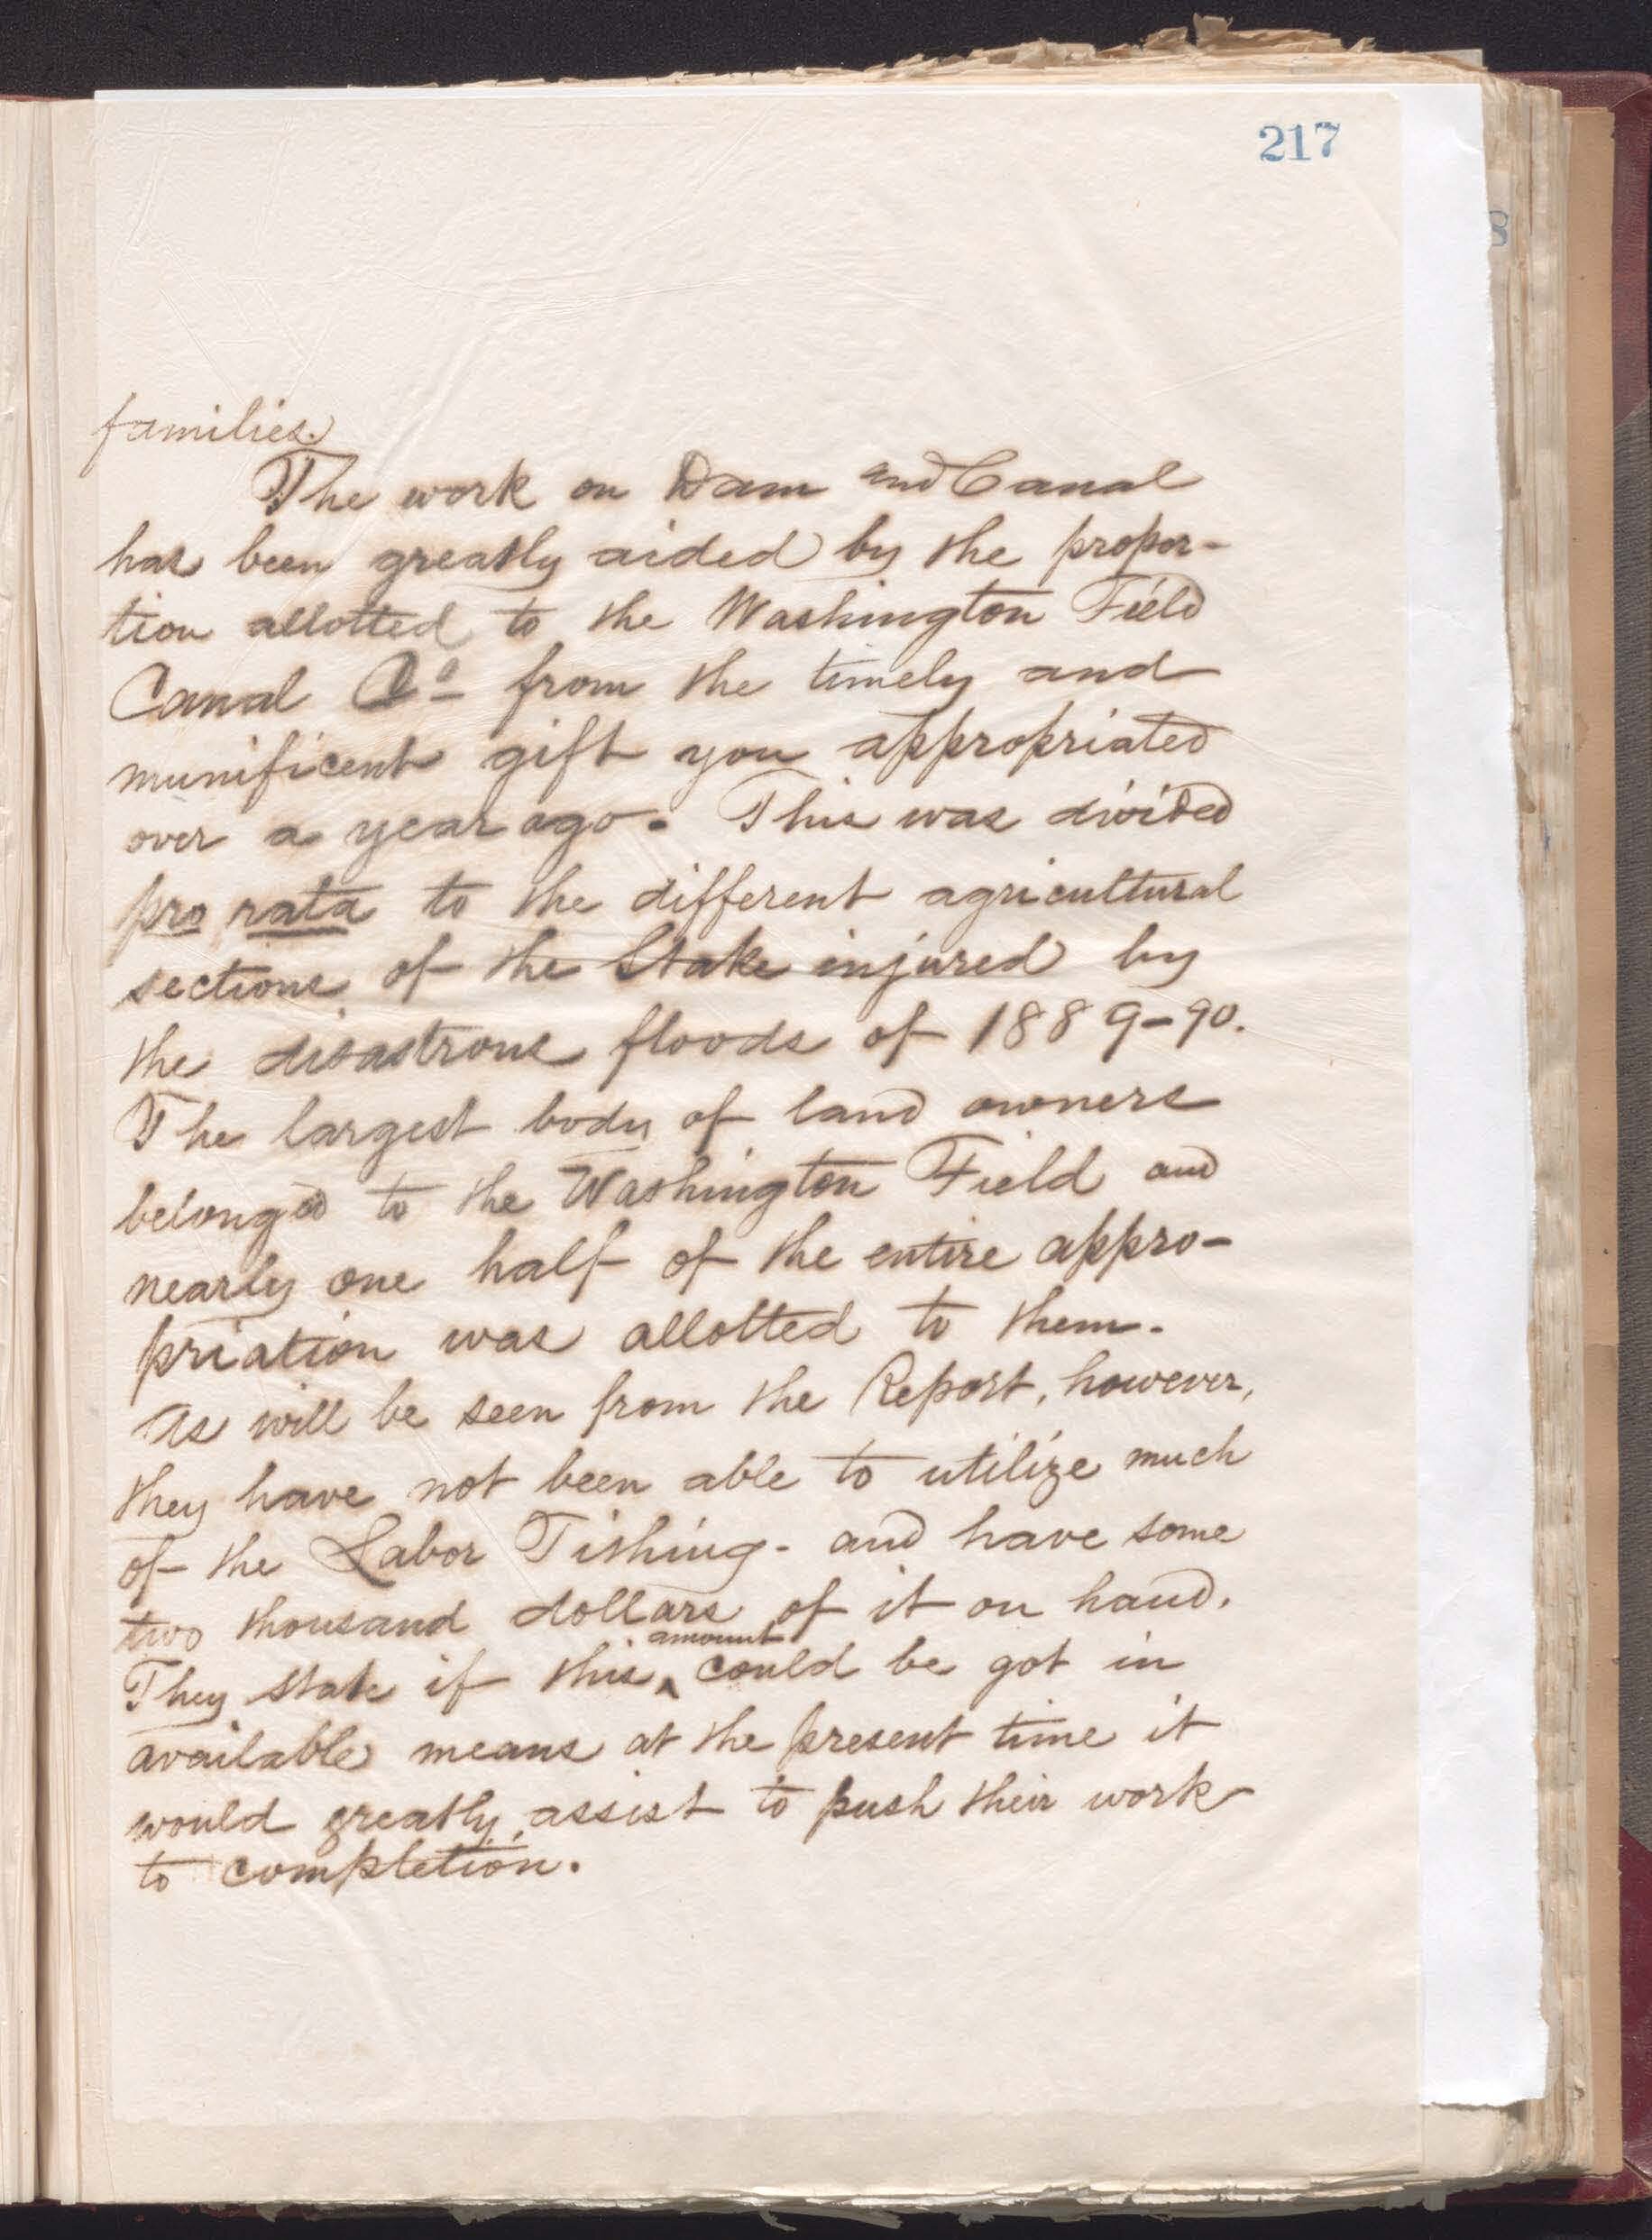 217
families.
The work on Dam and Canal
has been greatly aided by the propor-
tion allotted to the Washington Field
Canal Co from the timely and
munificent gift you appropriated
over a year ago. This was divided
pro rata to the different agricultural
sections of the Stake injured by
the disastrous floods of 1889-90.
The largest body of land owners
belonged to the Washington Field and
nearly one half of the entire appro-
priation was allotted to them.
As will be seen from the Report, however,
they have not been able to utilize much
of the Labor Tithing - and have some
two thousand dollars of it on hand.
They state if this ^ amount could be got in
available means at the present time it
would greatly assist to push their work
to completion.